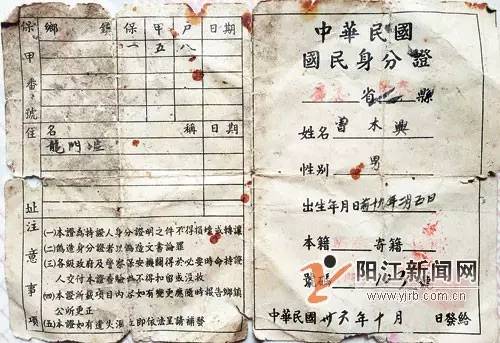 保甲番號
鄉鎮 保 甲 戶 日期
一 五 八
住址
名稱 日期
龍門
注意事項
(一)本證為持證人身分證明之件不得損壞或轉讓
(二)偽造身分證者以偽造文書論罪
(三)各級政府及警察憲兵機關得於必要時命持證
人交付本證看驗為不得扣留或沒收
(四)本證所載項目內容如有變更應隨時報告鄉鎮
公所更正
(五)本證如有遺失
立即依法呈請補發
中華民國
國民身分證
省 縣
姓名 曾木興
性別 男
出生年月日 年 月五日
本籍 寄籍
號碼
中華民國卅六年十月 日發給
阳江新闻网
www.yjrb.com.cn